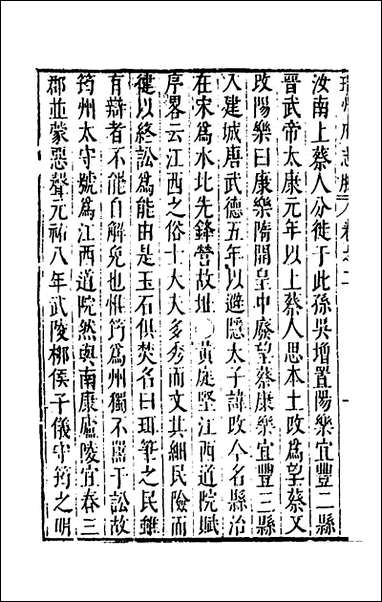 瑞州府志 卷之二
汝南上蔡人分徙于此孫吳增置陽樂宜豐二縣
晉武帝太康元年以上蔡人思本土改為望蔡又
改陽樂曰康樂隋開皇中廢望蔡康樂宜豐三縣
入建城唐武德五年以避隱太子諱改今名縣治
在宋為水北先鋒營故址 黃庭堅江西道院賦
序畧云江西之俗士大夫多秀而文其細民險而
健以終訟為能由是玉石俱焚名曰珥筆之民雖
有辯者不能自解免也惟筠為州獨不嚚于訟故
筠州太守號為江西道院然與南康廬陵宜春三
郡並蒙惡聲元祐八年武陵栁侯子儀守筠之明